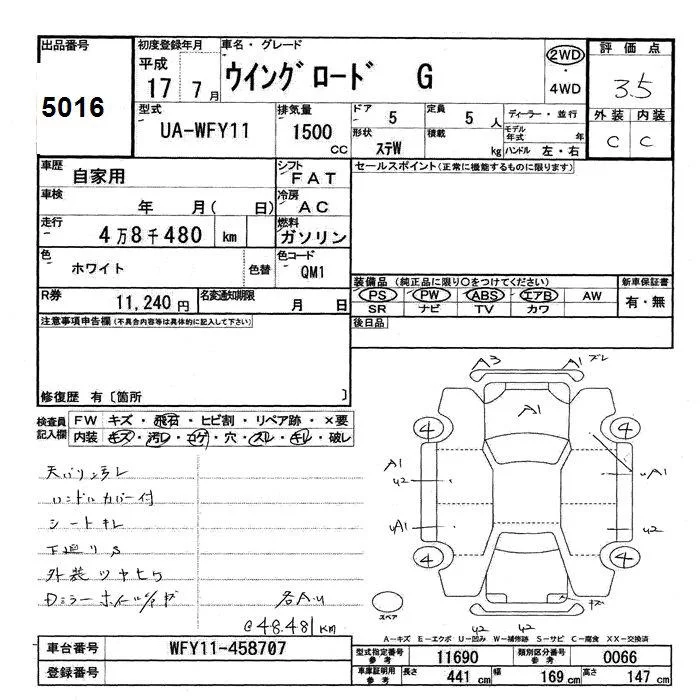 出品番号
5016
初度登録年月
平成
17 7月
車名・グレード
ウイングロード G
2WD
・
4WD
評価点
3.5
外装 内装
C C
型式
UA-WFY11
排気量
1500 CC
ドア 5
定員 5 人
ディーラー・並行
形状 ステW
積載 kg
モデル年式 年
ハンドル 左・右
車歴
自家用
シフト
FAT
車検
年 月( 日)
冷房
AC
走行
4万8千480 km
燃料
ガソリン
色
ホワイト
色替
色コード
QM1
R券
11,240 円
名変通知期限
月 日
セールスポイント(正常に機能するものに限ります)
装備品(純正品に限り○をつけてください)
PS PW ABS エアB AW
SR ナビ TV カワ
新車保証書
有・無
後日品
注意事項申告欄(不具合内容等は具体的に記入して下さい)
修復歴 有〔箇所 〕
検査員
記入欄
FW キズ・飛石・ヒビ割・リペア跡・×要
内装 キズ・汚レ・コゲ・穴・スレ・キレ・破レ
ハンドルカバー付
シートキレ
下廻りS
外装ツヤヒケ
各A.U
@48.481km
A3
A1 ズレ
A1
4
4
A1
U2
A1
A1
U2
4
4
キズ
U2 U2
スペア
A-キズ E-エクボ U-凹み W-補修跡 S-サビ C-腐食 XX-交換済
車台番号
WFY11-458707
登録番号
型式指定番号
参考
11690
類別区分番号
参考
0066
車庫証明用
参考
長さ 441 cm
幅 169 cm
高さ 147 cm